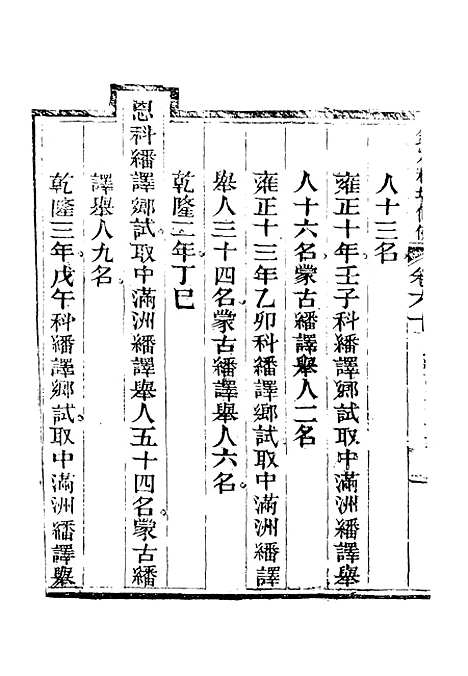 八十三名
雍正十年壬子科繙譯鄉試取中滿洲繙譯舉
人十六名蒙古繙譯舉人二名
雍正十三年乙卯科繙譯鄉試取中滿洲繙譯
舉人三十四名蒙古繙譯舉人六名
乾隆二年丁巳
恩科繙譯鄉試取中滿洲繙譯舉人五十四名蒙古繙
譯舉人九名
乾隆三年戊午科繙譯鄉試取中滿洲繙譯舉